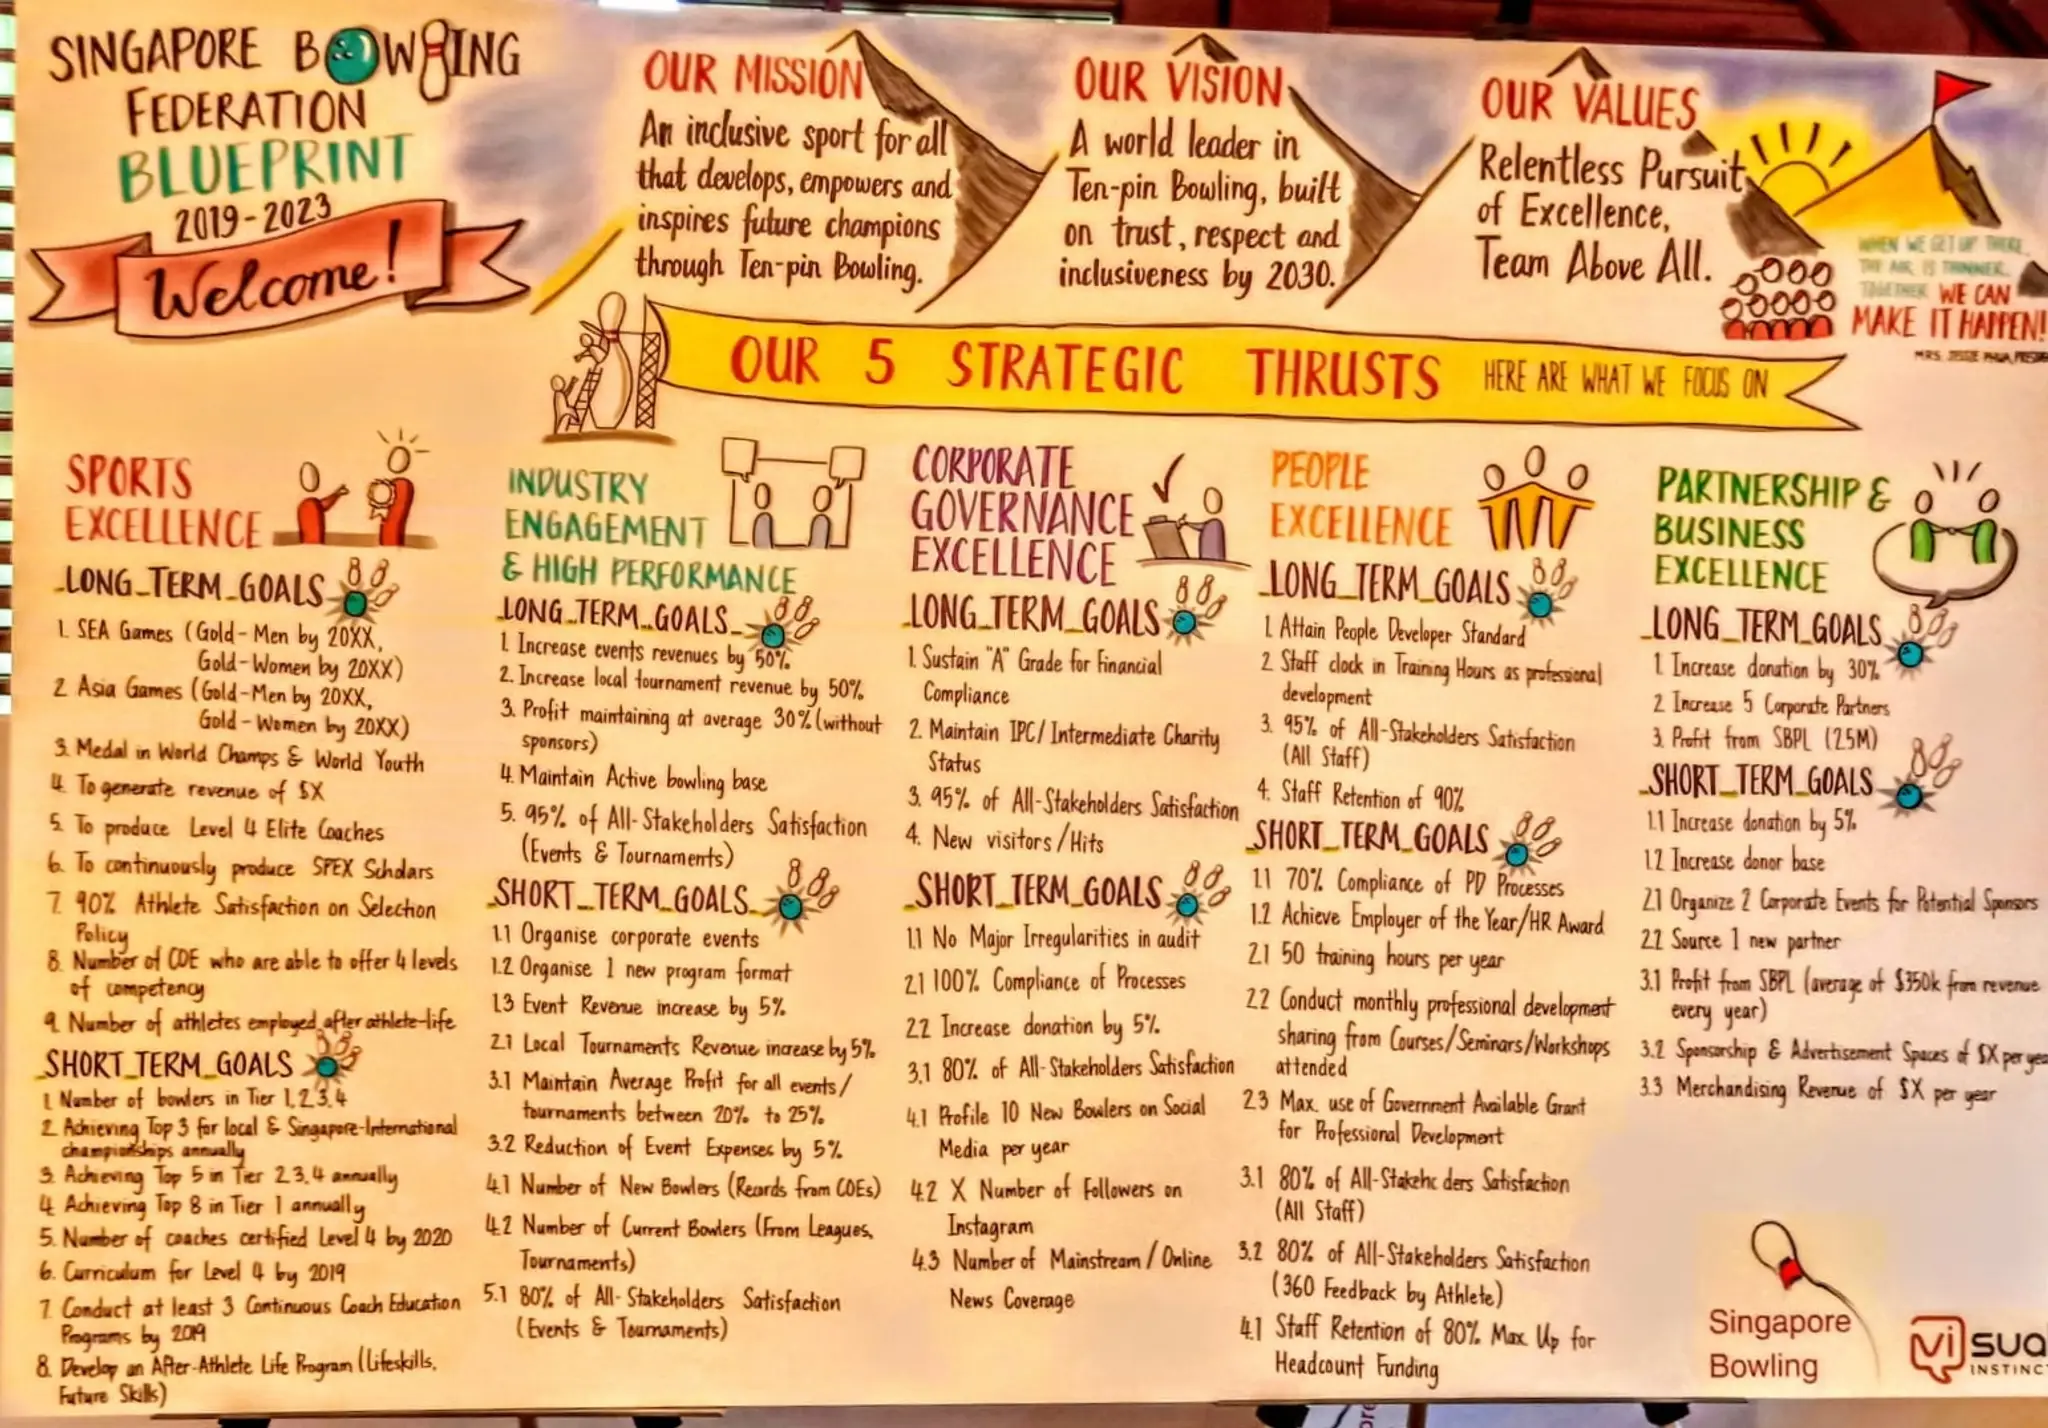 SINGAPORE BOWLING
FEDERATION
BLUEPRINT
2019-2023
Welcome!
OUR MISSION
An inclusive sport for all
that develops, empowers and
inspires future champions
through Ten-pin Bowling.
OUR VISION
A world leader in
Ten-pin Bowling, built
on trust, respect and
inclusiveness by 2030.
OUR VALUES
Relentless Pursuit
of Excellence,
Team Above All.
WHEN WE GET UP THERE,
THE AIR IS THINNER.
TOGETHER WE CAN
MAKE IT HAPPEN!
MRS. JESSIE PHUA,
OUR 5 STRATEGIC THRUSTS HERE ARE WHAT WE FOCUS ON
SPORTS
EXCELLENCE
LONG_TERM_GOALS
1. SEA Games (Gold-Men by 20XX,
Gold-Women by 20XX)
2. Asia Games (Gold-Men by 20XX,
Gold-Women by 20XX)
3. Medal in World Champs & World Youth
4. To generate revenue of $X
5. To produce Level 4 Elite Coaches
6. To continuously produce SPEX Scholars
7. 90% Athlete Satisfaction on Selection
Policy
8. Number of COE who are able to offer 4 levels
of competency
9. Number of athletes employed after athlete-life
SHORT_TERM_GOALS
1. Number of bowlers in Tier 1,2,3,4
2. Achieving Top 3 for local & Singapore-International
championships annually
3. Achieving Top 5 in Tier 2,3,4 annually
4. Achieving Top 8 in Tier 1 annually
5. Number of coaches certified Level 4 by 2020
6. Curriculum for Level 4 by 2019
7. Conduct at least 3 Continuous Coach Education
Programs by 2019
8. Develop an After-Athlete Life Program (Lifeskills,
Future Skills)
INDUSTRY
ENGAGEMENT
& HIGH PERFORMANCE
LONG_TERM_GOALS
1. Increase events revenues by 50%
2. Increase local tournament revenue by 50%
3. Profit maintaining at average 30% (without
sponsors)
4. Maintain Active bowling base
5. 95% of All-Stakeholders Satisfaction
(Events & Tournaments)
SHORT_TERM_GOALS
1.1 Organise corporate events
1.2 Organise 1 new program format
1.3 Event Revenue increase by 5%
2.1 Local Tournaments Revenue increase by 5%
3.1 Maintain Average Profit for all events/
tournaments between 20% to 25%
3.2 Reduction of Event Expenses by 5%
4.1 Number of New Bowlers (Records from COEs)
4.2 Number of Current Bowlers (From Leagues,
Tournaments)
5.1 80% of All-Stakeholders Satisfaction
(Events & Tournaments)
CORPORATE
GOVERNANCE
EXCELLENCE
LONG_TERM_GOALS
1. Sustain "A" Grade for Financial
Compliance
2. Maintain IPC/Intermediate Charity
Status
3. 95% of All-Stakeholders Satisfaction
4. New visitors/Hits
SHORT_TERM_GOALS
1.1 No Major Irregularities in audit
2.1 100% Compliance of Processes
2.2 Increase donation by 5%
3.1 80% of All-Stakeholders Satisfaction
4.1 Profile 10 New Bowlers on Social
Media per year
4.2 X Number of Followers on
Instagram
4.3 Number of Mainstream/Online
News Coverage
PEOPLE
EXCELLENCE
LONG_TERM_GOALS
1. Attain People Developer Standard
2. Staff clock in Training Hours as professional
development
3. 95% of All-Stakeholders Satisfaction
(All Staff)
4. Staff Retention of 90%
SHORT_TERM_GOALS
1.1 70% Compliance of PD Processes
1.2 Achieve Employer of the Year/HR Award
2.1 50 training hours per year
2.2 Conduct monthly professional development
sharing from Courses/Seminars/Workshops
attended
2.3 Max. use of Government Available Grant
for Professional Development
3.1 80% of All-Stakehc ders Satisfaction
(All Staff)
3.2 80% of All-Stakeholders Satisfaction
(360 Feedback by Athlete)
4.1 Staff Retention of 80% Max. Up for
Headcount Funding
PARTNERSHIP &
BUSINESS
EXCELLENCE
LONG_TERM_GOALS
1. Increase donation by 30%
2. Increase 5 Corporate Partners
3. Profit from SBPL (2.5M)
SHORT_TERM_GOALS
1.1 Increase donation by 5%
1.2 Increase donor base
2.1 Organize 2 Corporate Events for Potential Sponsors
2.2 Source 1 new partner
3.1 Profit from SBPL (average of $350k from revenue
every year)
3.2 Sponsorship & Advertisement Spaces of $X per yea
3.3 Merchandising Revenue of $X per year
Singapore
Bowling
Visua
INSTINC